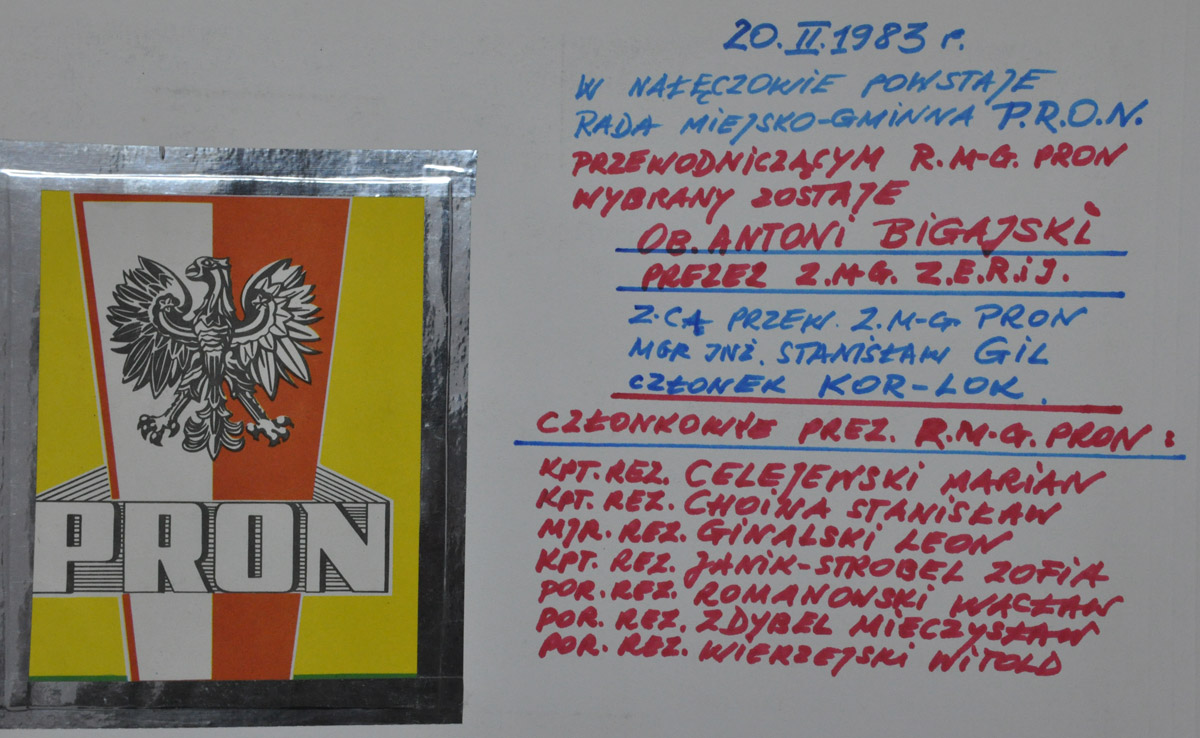 PRON
20.II.1983 r.
W NAŁĘCZOWIE POWSTAJE
RADA MIEJSKO-GMINNA P.R.O.N.
PRZEWODNICZĄCYM R.M-G. PRON
WYBRANY ZOSTAJE
OB. ANTONI BIGAJSKI
PREZEZ Z.M-G. Z.E.R.iJ.
Z-CĄ PRZEW. Z.M-G PRON
MGR JNŻ. STANISŁAW GIL
CZŁONEK KOR-LOK.
CZŁONKOWIE PREZ. R.M-G. PRON:
KPT. REZ. CELEJEWSKI MARIAN
KPT. REZ. CHOINA STANISŁAW
MJR. REZ. GINALSKI LEON
KPT. REZ. JANIK-STROBEL ZOFIA
POR. REZ. ROMANOWSKI WACŁAW
POR. REZ. ZDYBEL MIECZYSŁAW
POR. REZ. WIERZEJSKI WITOLD